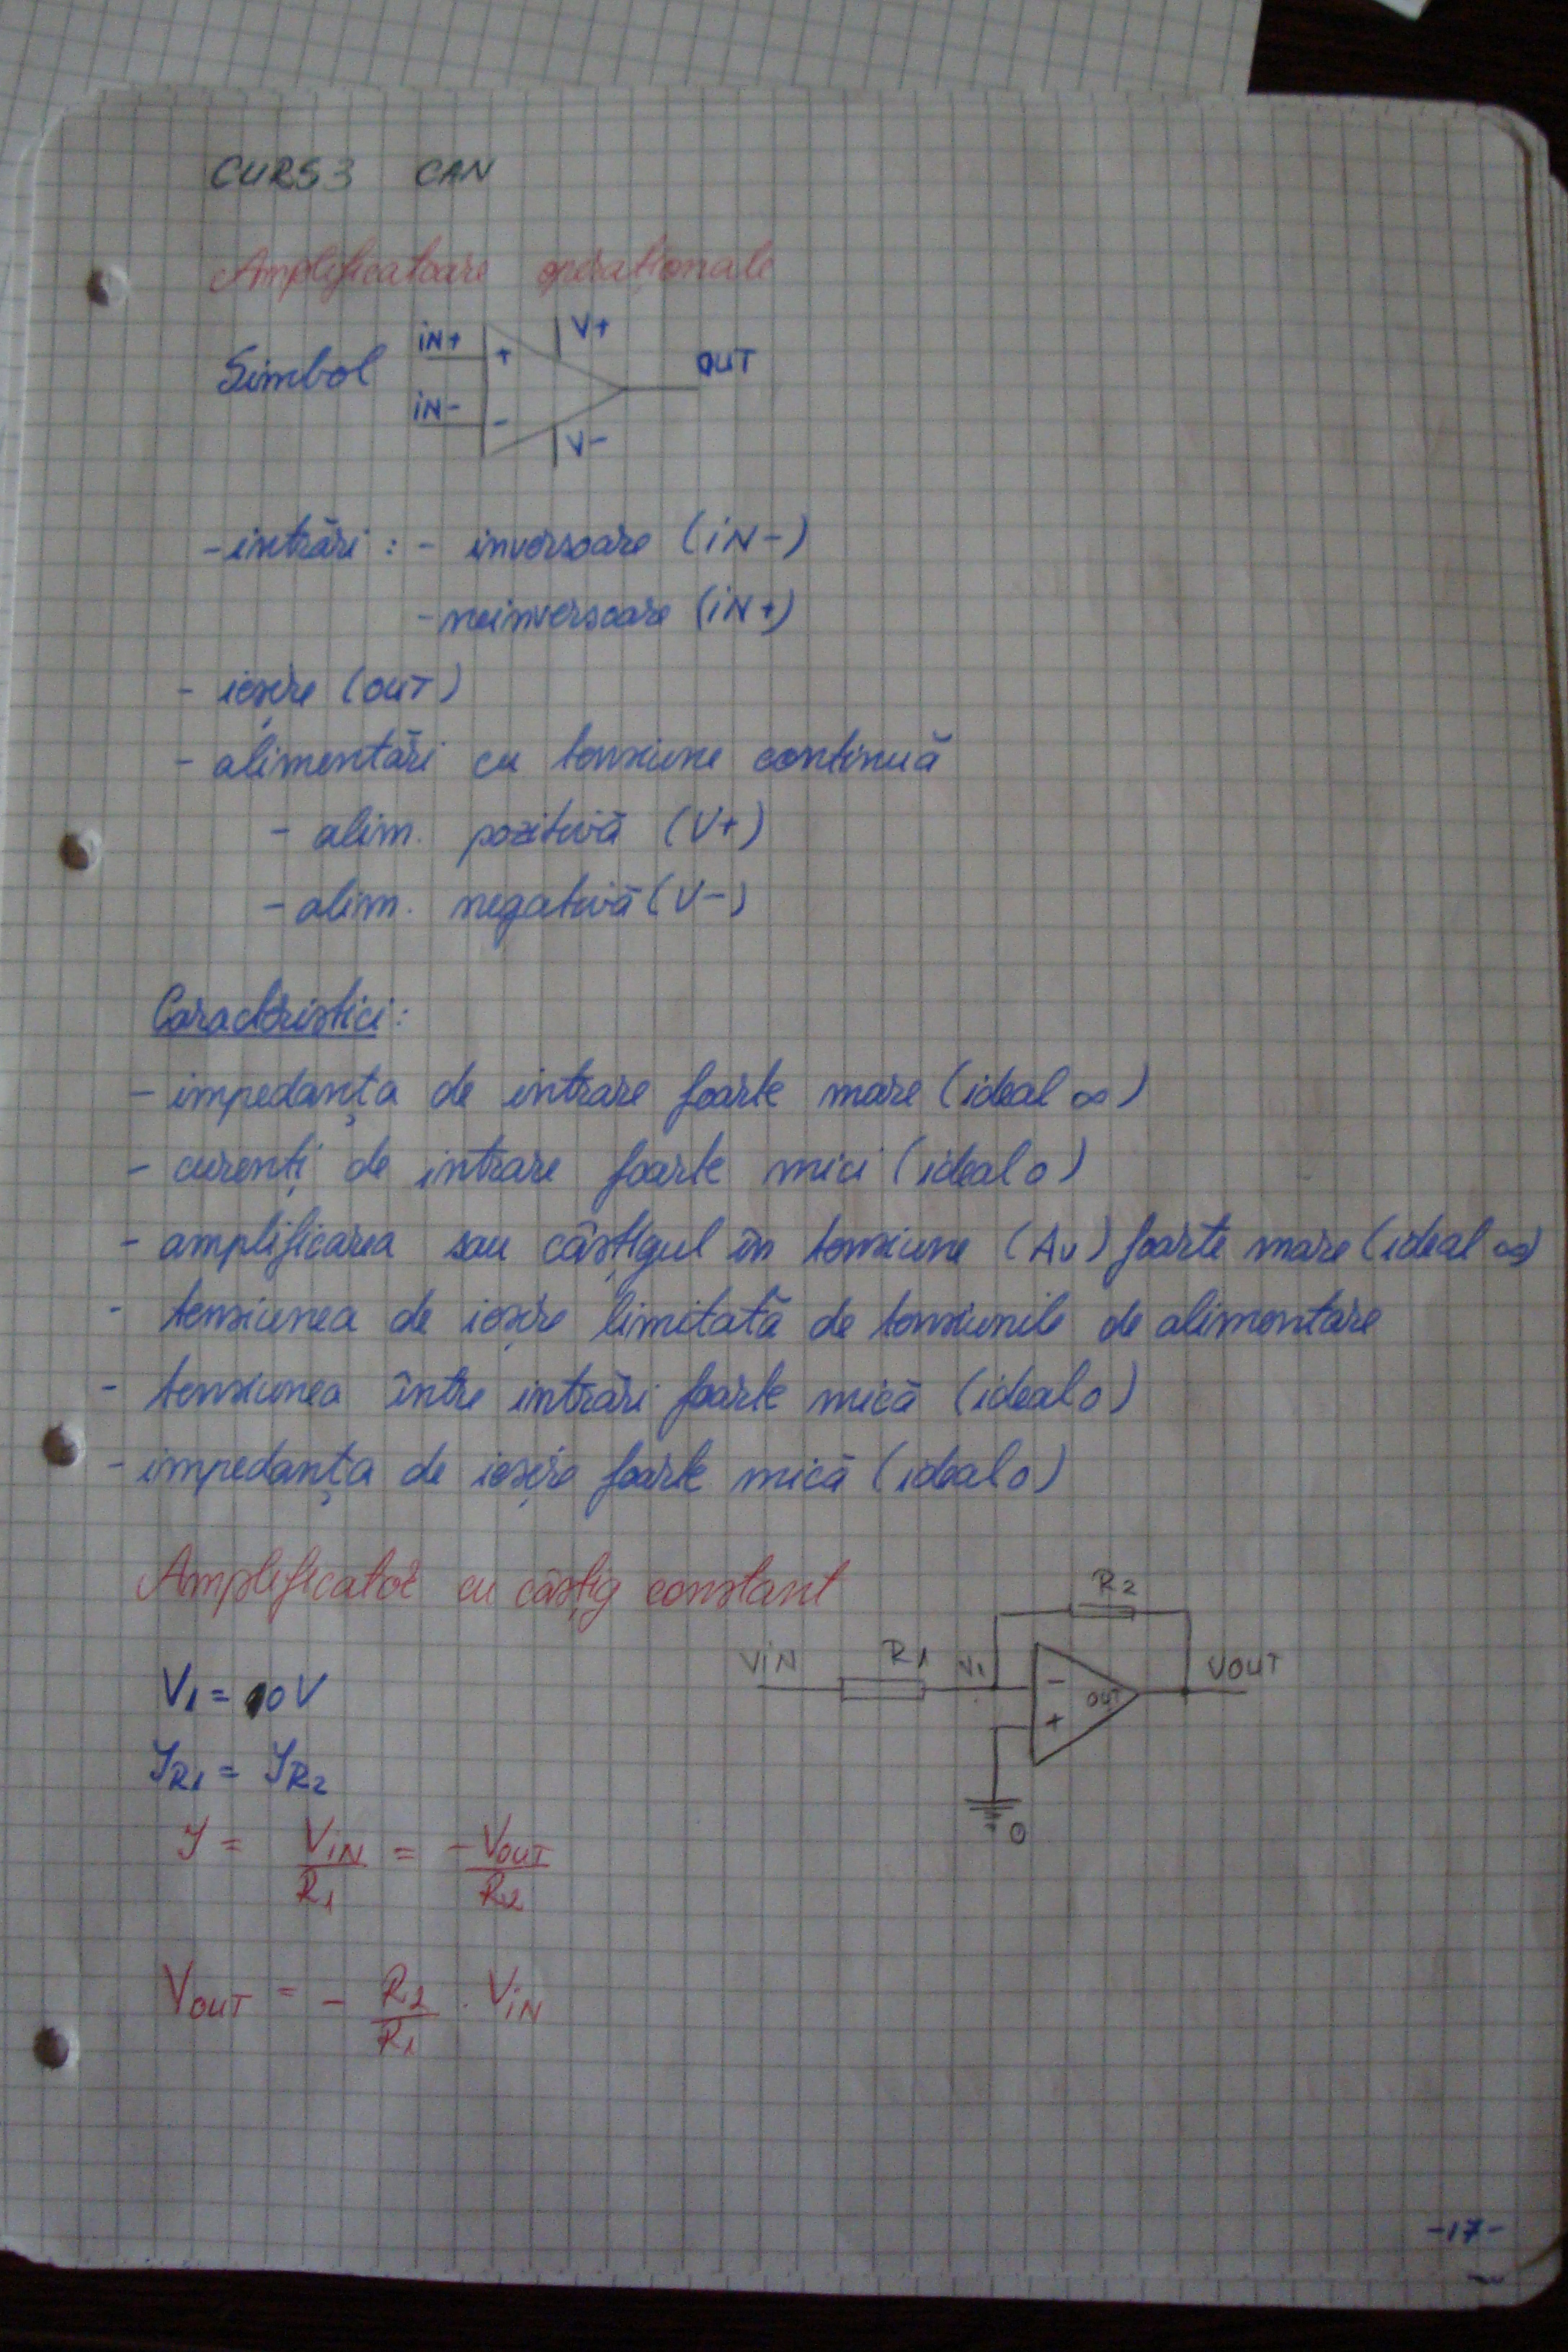 CURS 3 CAN
Amplificatoare operaționale
Simbol
iN+
+
V+
OUT
iN-
-
V-
- intrări : - inversoare (iN-)
- neinversoare (iN+)
- ieșire (OUT)
- alimentări cu tensiune continuă
- alim. pozitivă (V+)
- alim. negativă (V-)
Caracteristici:
- impedanța de intrare foarte mare (ideal ∞)
- curenți de intrare foarte mici (ideal 0)
- amplificarea sau câștigul în tensiune (Av) foarte mare (ideal ∞)
- tensiunea de ieșire limitată de tensiunile de alimentare
- tensiunea între intrări foarte mică (ideal 0)
- impedanța de ieșire foarte mică (ideal 0)
Amplificator cu câștig constant
R2
ViN R1 V1 - OUT VOUT
+
0
V1 = 0V
IR1 = IR2
I = ViN/R1 = -VOUT/R2
VOUT = - R2/R1 · ViN
-17-